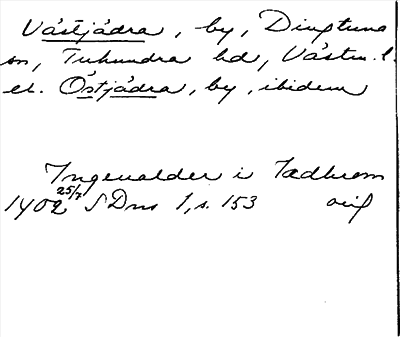 Västjädra, by, Dingtuna
sn, Tuhundra hd, Västm. l.
el. Östjädra, by, ibidem
Ingeualder i Iædhrom
1402 25/7 SDns 1, s. 153 orig